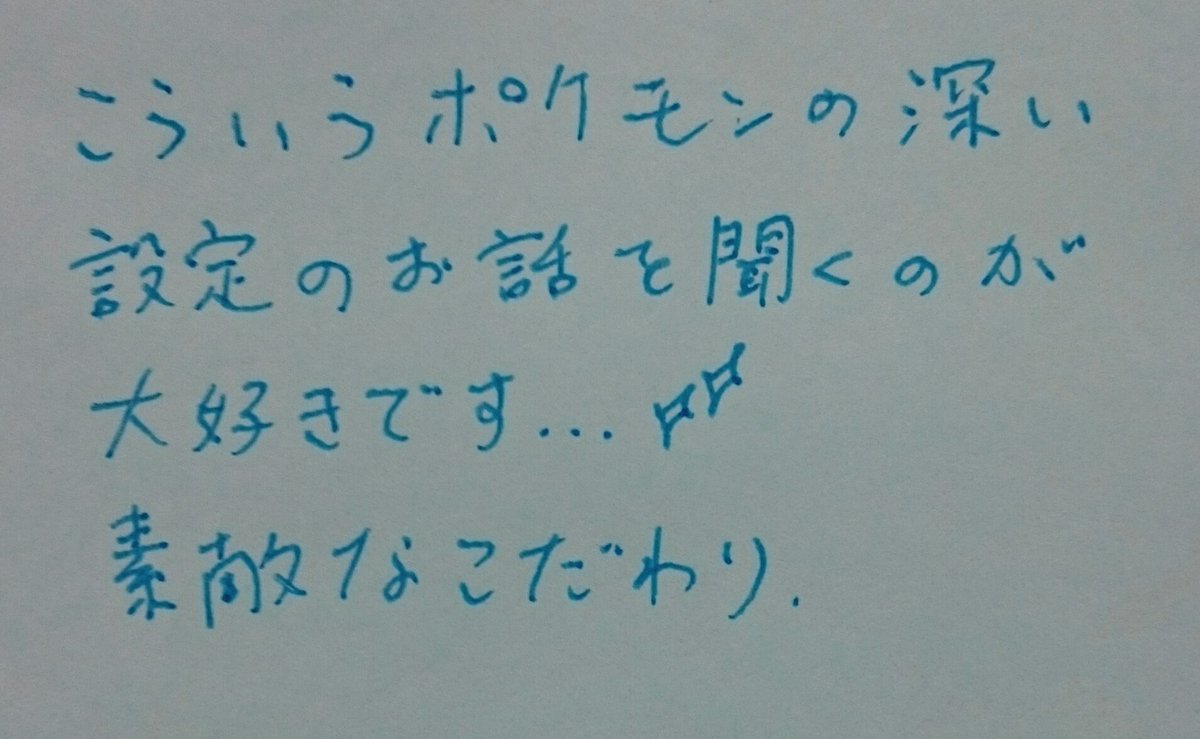 こういうポケモンの深い
設定のお話を聞くのが
大好きです...
素敵なこだわり.